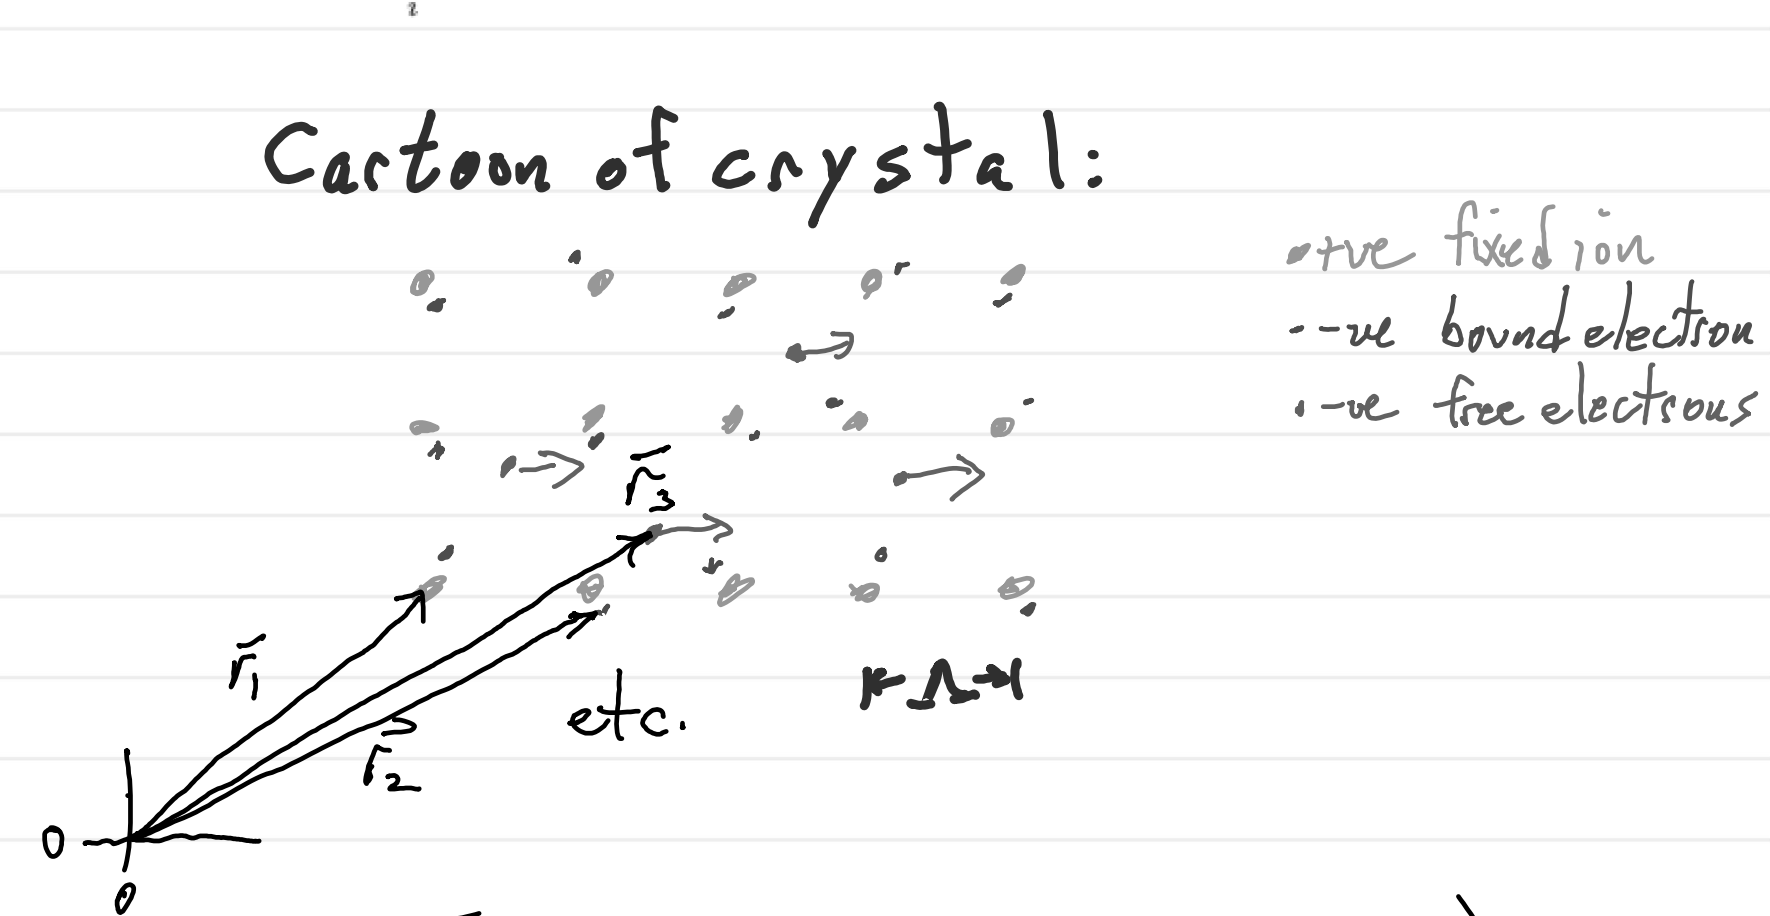 Cartoon of crystal:
+ve fixed ion
-ve bound electron
-ve free electrons
r̅₃
r̅₁
Λ
etc.
r⃗₂
0
0